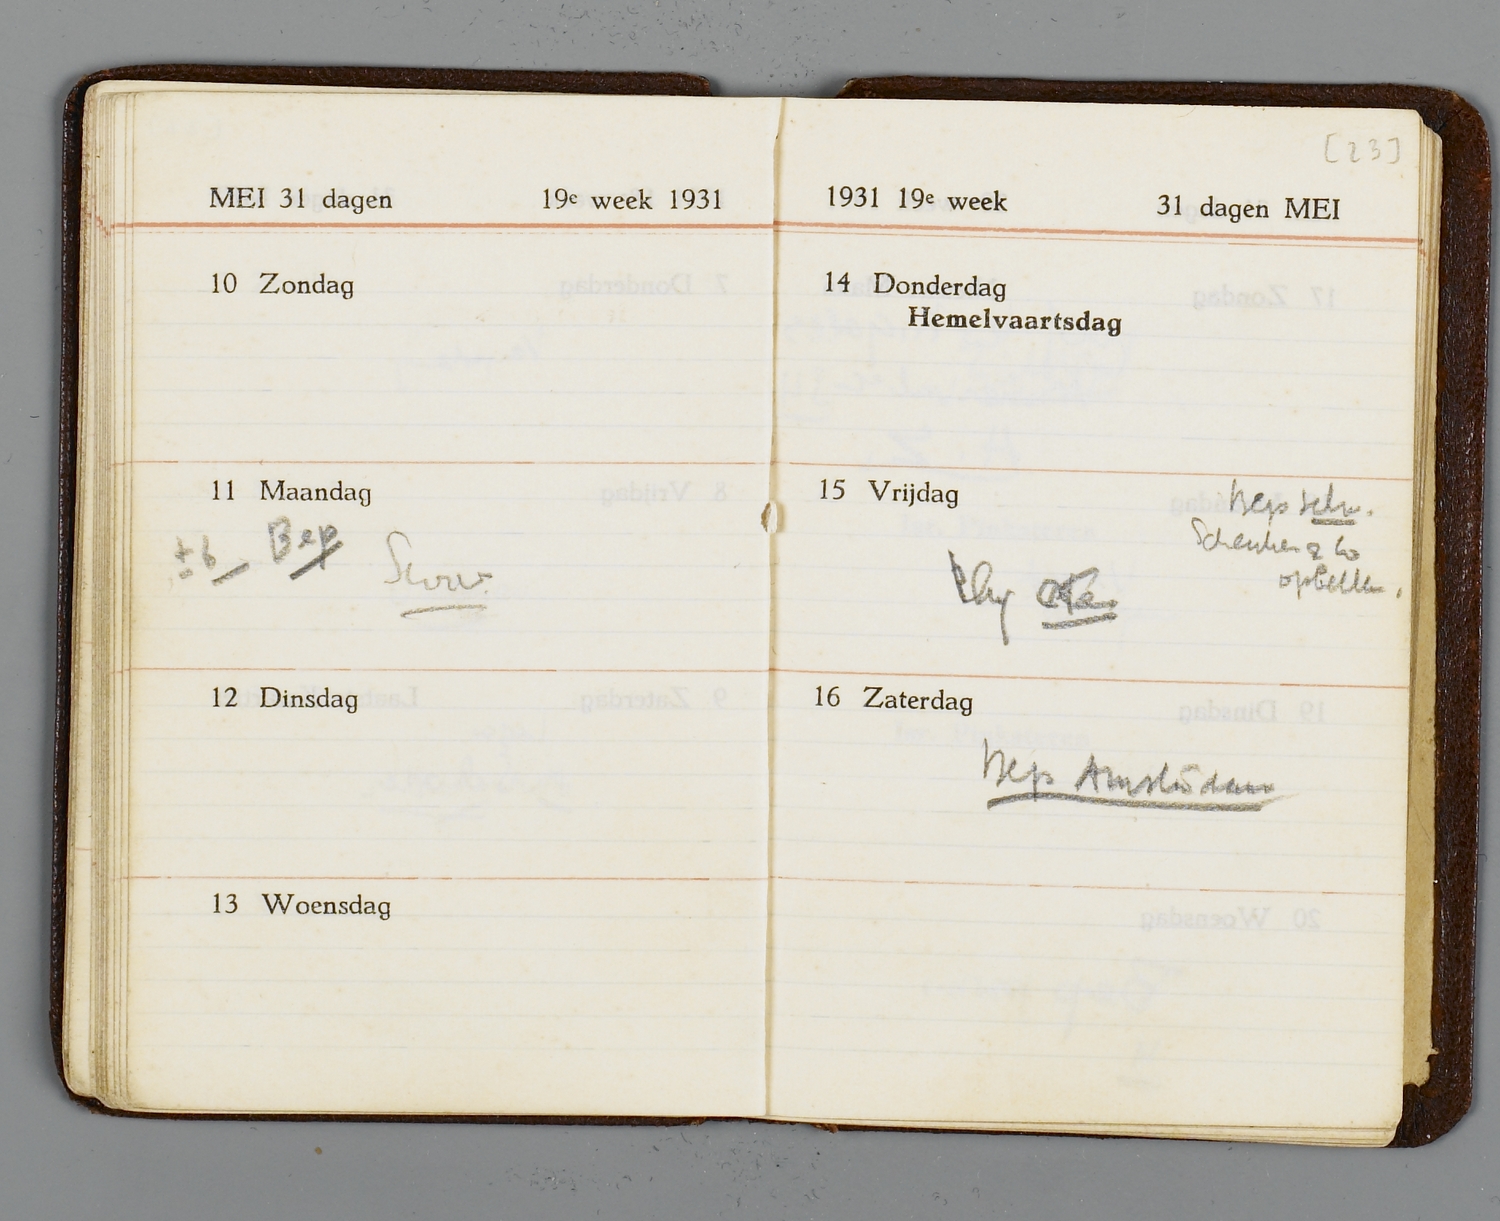 MEI 31 dagen 19e week 1931
10 Zondag
11 Maandag
± 6 Bep
12 Dinsdag
13 Woensdag
[23]
1931 19e week 31 dagen MEI
14 Donderdag
Hemelvaartsdag
15 Vrijdag
opbellen.
16 Zaterdag
Bep Amsterdam